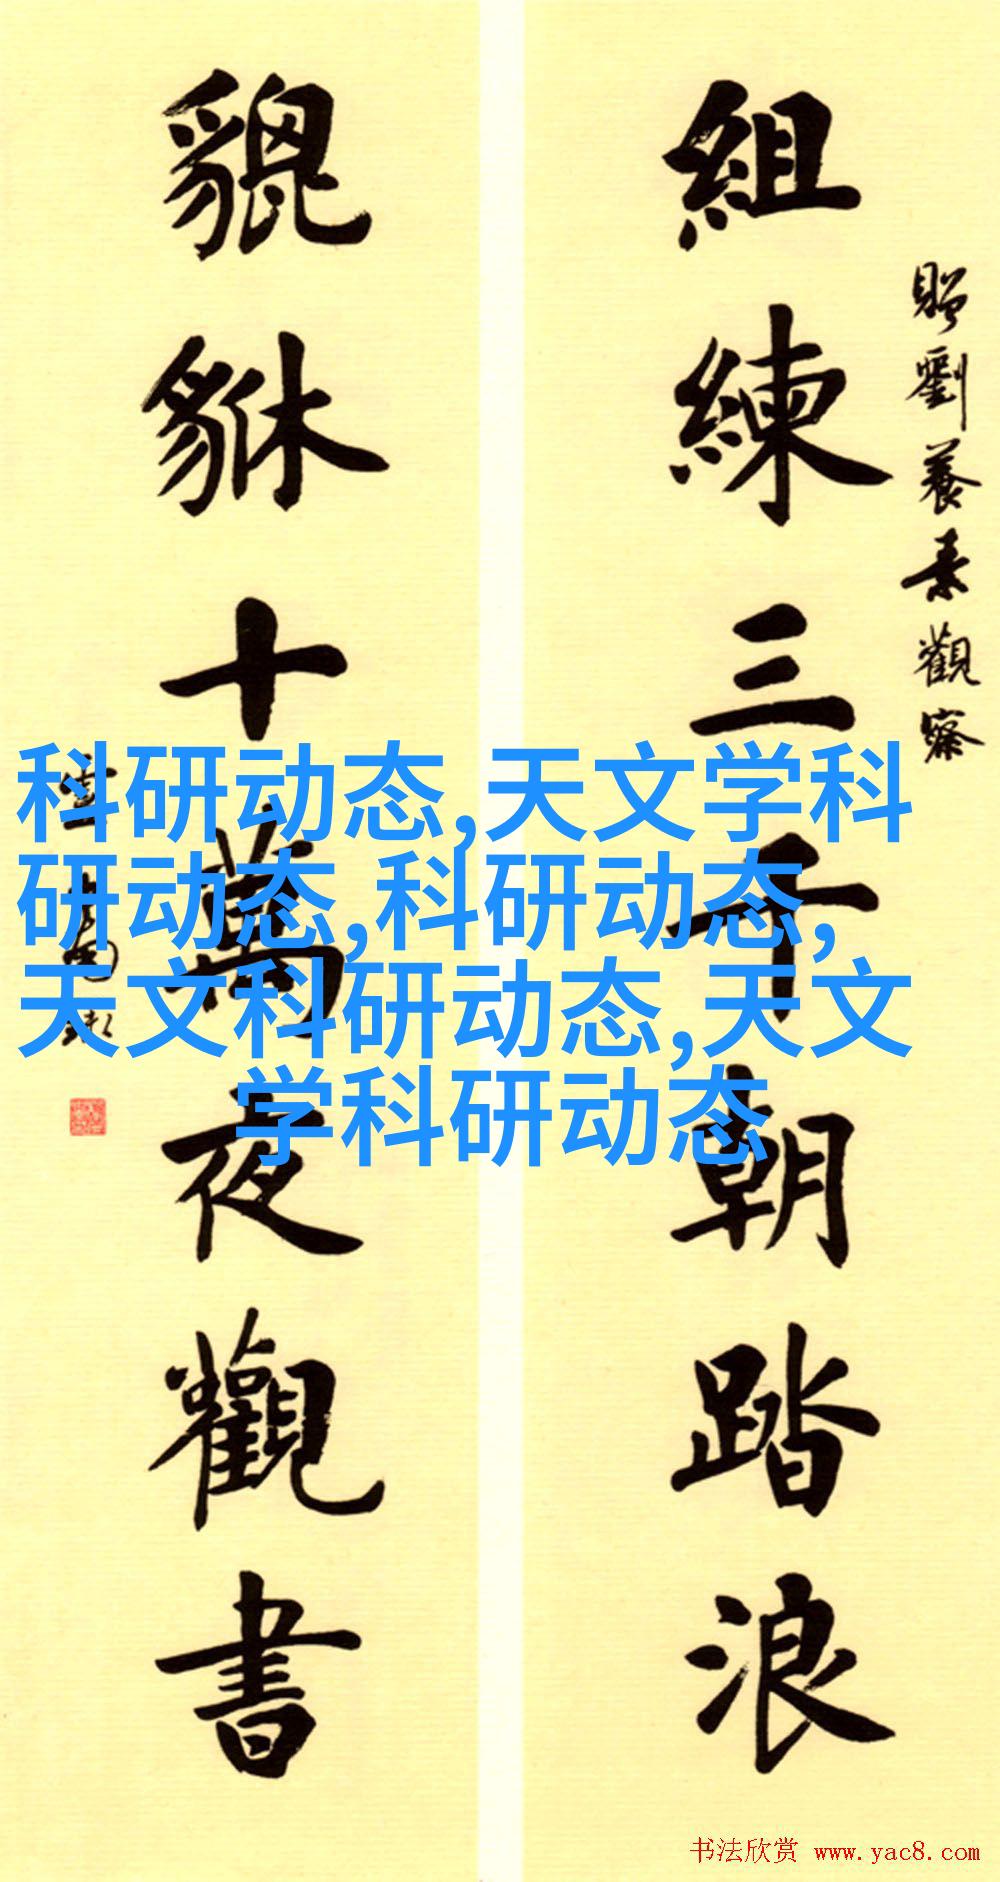 贈劉養素觀察
組練三千朝踏浪
貔貅十萬夜觀書
科研动态,天文学科
研动态,科研动态,
天文科研动态,天文
学科研动态
书法欣赏 www.yac8.com